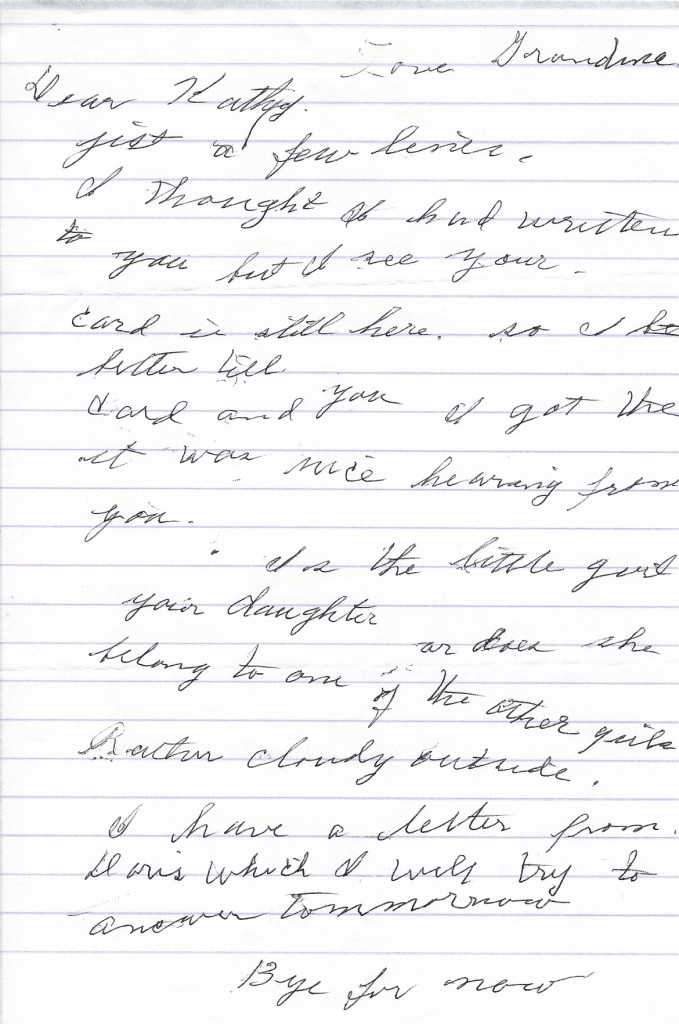 Love Grandma
Dear Kathy.
jist a few lines.
I thought I had written
to you but I see your
card is still here. so I
better till
you I got the
card and
it was nice hearing from
you.
Is the little girl
your daughter
or does she
belong to one of the other girls
Rather cloudy outside.
I have a letter from.
Doris which I will try to
answer tommorrow
Bye for now